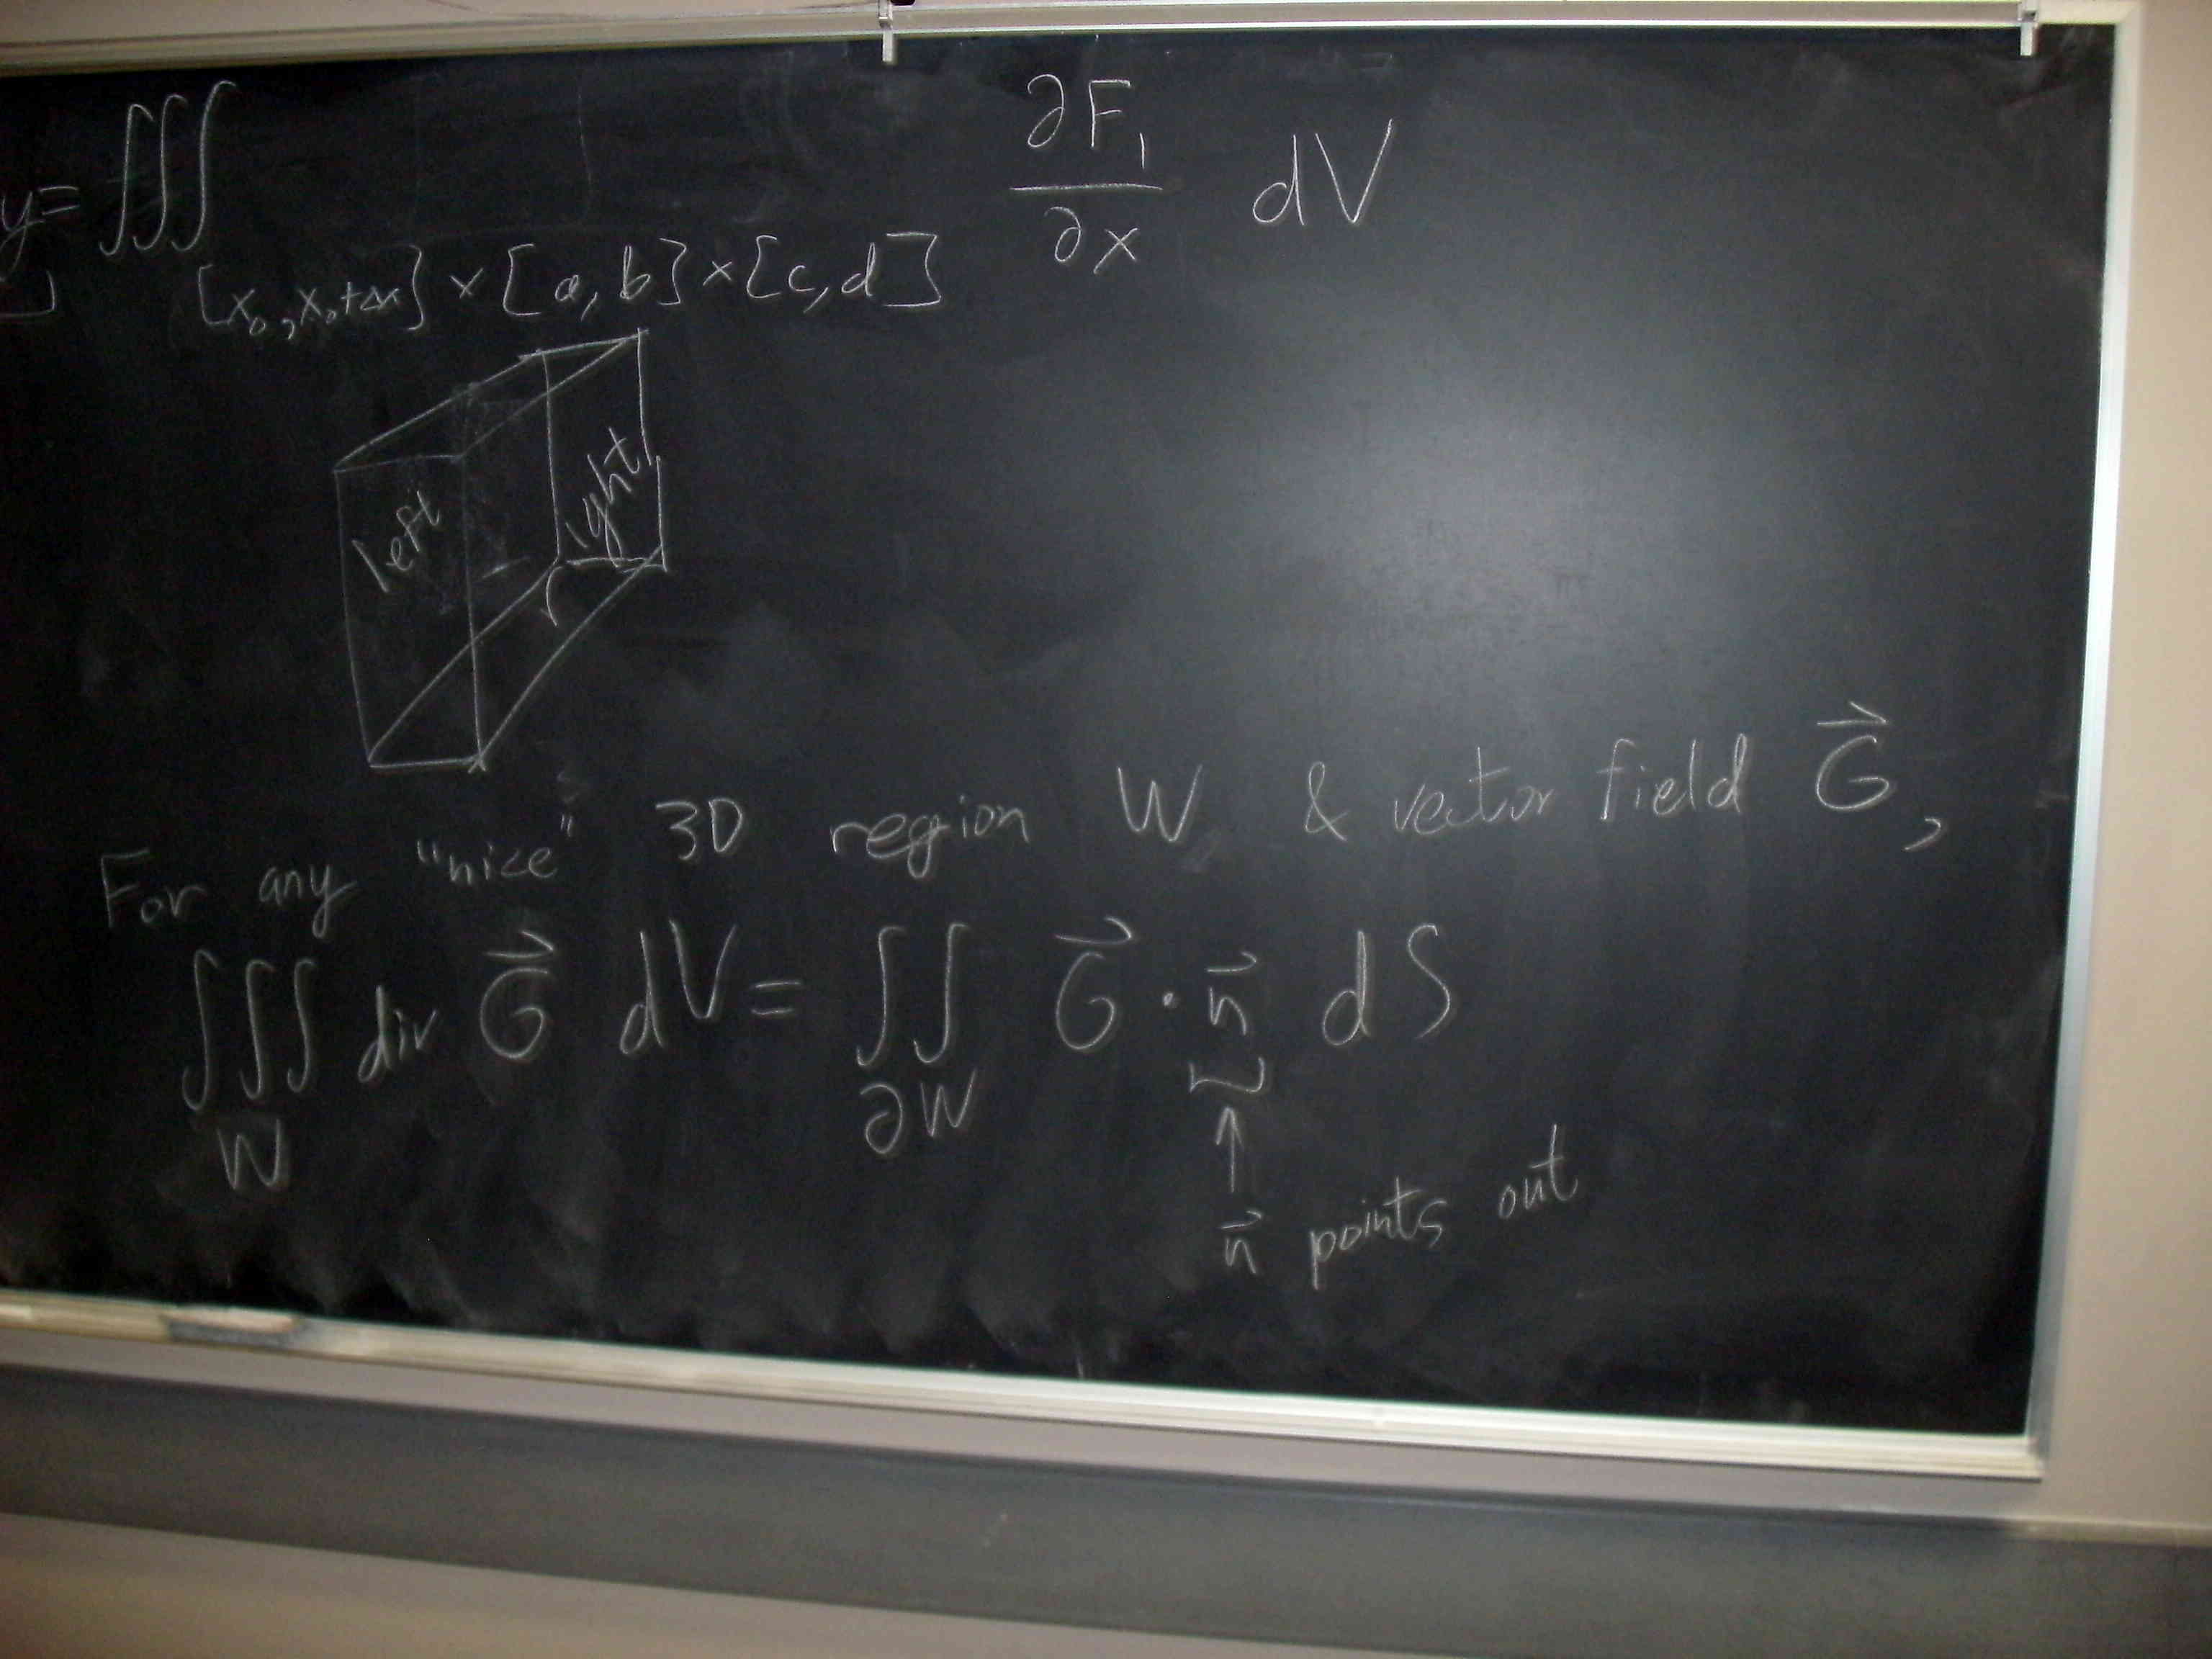 y= ∭ ∂F₁/∂x dV
] [x₀, x₀+Δx] × [a, b] × [c, d]
left
right
For any "nice" 3D region W & vector field G⃗,
∭ div G⃗ dV = ∬ G⃗ · n⃗ dS
W ∂W
n⃗ points out